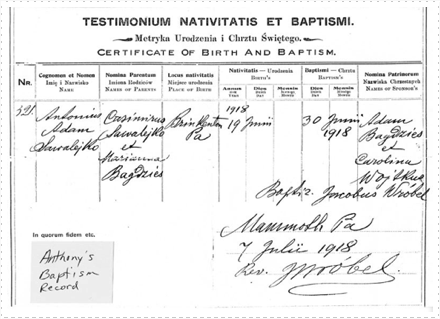 TESTIMONIUM NATIVITATIS ET BAPTISMI.
Metryka Urodzenia i Chrztu Świętego.
CERTIFICATE OF BIRTH AND BAPTISM.
Nr.
Cognomen et Nomen
Imię i Nazwisko
NAME
Nomina Parentum
Imiona Rodziców
NAMES OF PARENTS
Locus nativitatis
Miejsce urodzenia
PLACE OF BIRTH
Nativitatis — Urodzenia
BIRTH'S
Annus
Rok
YEAR
Dies
Dzień
DAY
Mensis
Miesiąc
MONTH
Baptismi — Chrztu
BAPTISM'S
Dies
Dzień
DAY
Mensis
Miesiąc
MONTH
Nomina Patrinorum
Imiona i Nazwisko Chrzestnych
NAMES OF SPONSOR'S
321
Antonius
Adam
Suwalejko
Casimirus
Suwalejko
et
Marianna
Bagdzies
Brinkerton
Pa
1918
19 Junii
30 Junii
1918
Adam
Bagdzies
et
Carolina
Wojtkun
Baptiz. Jacobus Wróbel
In quorum fidem etc.
Mammoth Pa
7 Julii 1918
Rev. JWróbel.
Anthony's
Baptism
Record